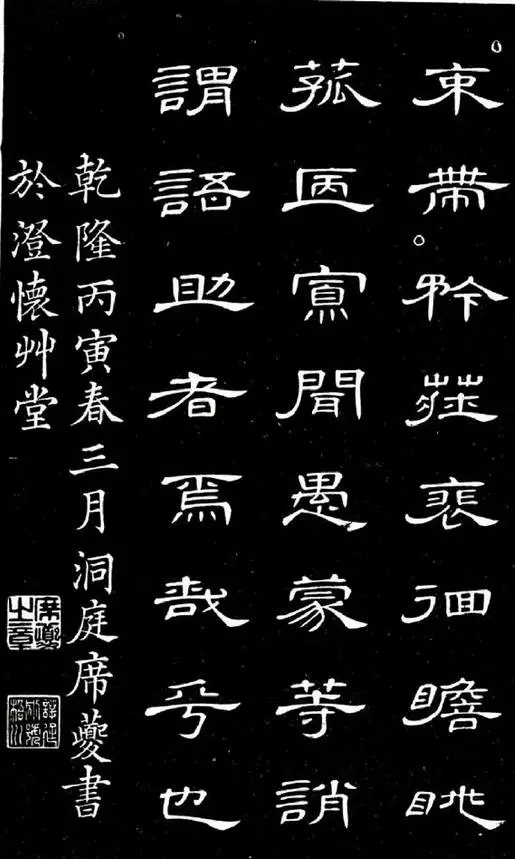 束帶矜莊裵徊瞻眺
菰㔷寡聞愚蒙等誚
謂語助者焉哉乎也
乾隆丙寅春三月洞庭席夔書
於澄懷艸堂
席夔之章